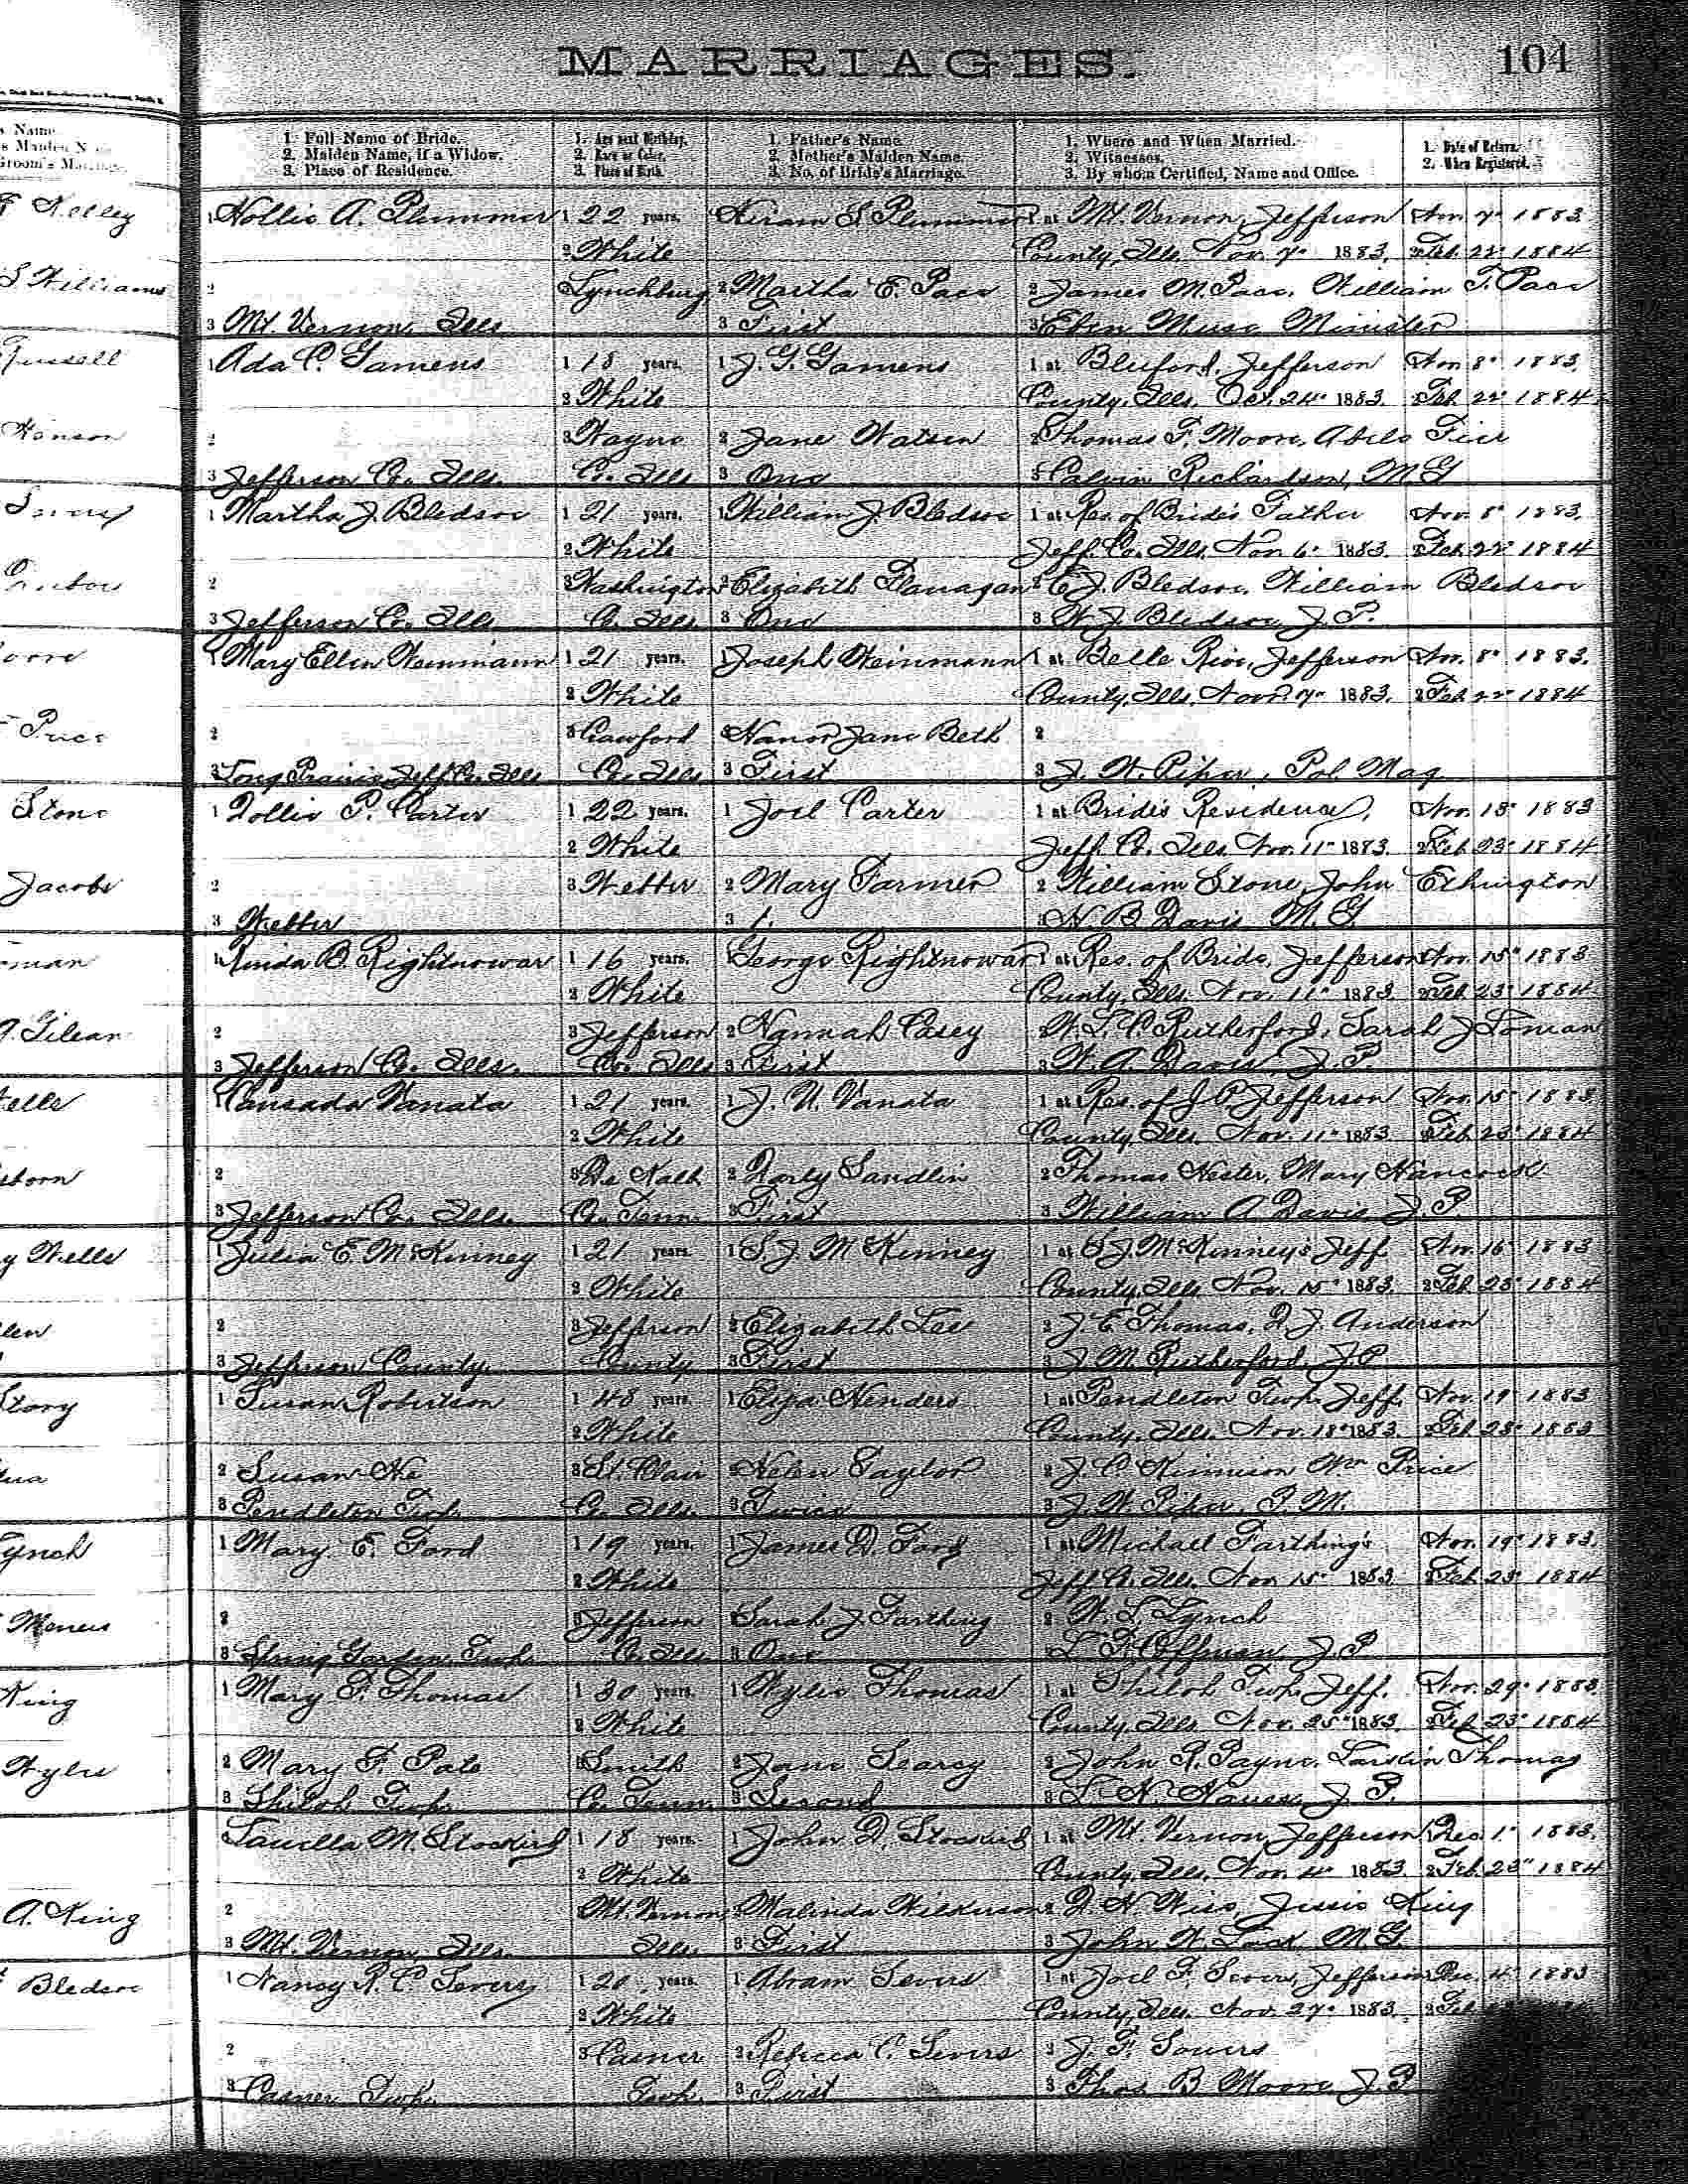 MARRIAGES.
104
1. Full Name of Bride.
2. Maiden Name, if a Widow.
3. Place of Residence.
1. Age next Birthday.
2. Race or Color.
3. Place of Birth.
1. Father's Name
2. Mother's Maiden Name.
3. No. of Bride's Marriage.
1. Where and When Married.
2. Witnesses.
3. By whom Certified, Name and Office.
1. Date of Return.
2. When Registered.
Kelley
1 Hollie A. Plummer 1 22 years. Hiram S Plummer 1 at Mt. Vernon, Jefferson Nov. 7" 1883
2 White County, Ills. Nov. 7" 1883. 2 Feb. 22" 1884
S Williams
2 Lynchburg 2 Martha E. Pace 2 James M. Pace, William T. Pace
3 Mt. Vernon Ills 3 First 3 Eben Muse Minister
1 Ada C. Gamens 1 18 years. 1 J. G. Gamens 1 at Bluford, Jefferson Nov. 8" 1883.
2 White County, Ills. Oct. 24" 1883. 2 Feb. 22" 1884
Hanson
2 3 Wayne 2 Jane Watson 2 Thomas F. Moore,
3 Jefferson Co. Ills. Co. Ills 3 One 3 Calvin Richardson, M G
1 Martha J. Bledsoe 1 21 years. 1 William J. Bledsoe 1 at Res. of Bride's Father Nov. 8" 1883.
2 White Jeff. Co. Ills. Nov 6" 1883. 2 Feb. 22" 1884
2 3 Washington 2 Elizabeth Flanagan 2 E. J. Bledsoe, William Bledsoe
3 Jefferson Co. Ills Co. Ills 3 One 3 W. J. Bledsoe, J. P.
1 Mary Ellen Weinmann 1 21 years. 1 Joseph Weinmann 1 at Belle Rive, Jefferson Nov. 8" 1883.
2 White County, Ills. Nov. 7" 1883. 2 Feb. 22" 1884
Price
2 3 Crawford Jane Beth 2
3 Long Prairie Jeff Co. Ills Co. Ills 3 First 3 J. W. Piper, Pol Mag
Stone
1 Dollie P. Carter 1 22 years. 1 Joel Carter 1 at Bride's Residence, Nov. 13" 1883
2 White Jeff. Co. Ills Nov. 11" 1883. 2 Feb 23" 1884
Jacobs
2 3 Webber 2 Mary Farmer 2 William Stone, John Ethington
3 Webber 3 1. N B Davis M. G
1 B. Rightnowar 1 16 years. George Rightnowar 1 at Res. of Bride, Jefferson Nov. 15" 1883
2 White County, Ills. Nov. 11" 1883 2 Feb. 23" 1884
2 3 Jefferson 2 Hannah Casey 2 W. L. C. Rutherford, Sarah J
3 Jefferson Co. Ills. Co. Ills 3 First 3 W. A. Davis, J. P.
1 Vanata 1 21 years. 1 J. U. Vanata 1 at Res. of J. P. Jefferson Nov. 15" 1883
2 White County, Ills. Nov. 11" 1883 2 Feb. 23" 1884
2 3 De Kalb 2 Sandlin 2 Thomas Hester, Mary Hancock
3 Jefferson Co. Ills. Co. Tenn. 3 First 3 William A. Davis J. P.
y Wells
1 Julia E. McKinney 1 21 years. 1 S. J. McKinney 1 at S J. McKinney's Jeff. Nov. 16" 1883
2 White County, Ills. Nov. 15" 1883. 2 Feb. 23" 1884
2 3 Jefferson 2 Elizabeth Lee 2 J. E. Thomas, D. J. Anderson
3 Jefferson County. County 3 First 3 J. M. Rutherford, J. P.
Story
1 Susan Robertson 1 48 years. 1 1 at Pendleton Twp. Jeff. Nov. 19" 1883
2 White County, Ills. Nov. 18" 1883. 2 Feb 23" 1883
2 Susan 3 St. Clair 2 Helen Taylor 2 J. C. Kinnison Wm Price
3 Pendleton Twp. Co. Ills. 3 Twice 3 J. W. Piper, P. M.
Lynch
1 Mary E. Ford 1 19 years. 1 James D. Ford 1 at Michael Farthing's Nov. 19" 1883.
2 White Jeff Co. Ills. Nov 15" 1883 2 Feb 23" 1884
2 3 Jefferson Sarah J. Farthing 2 W. L. Lynch
3 Spring Garden Twp. Co. Ills. 3 One L. F. Coffman J. P.
King
1 Mary F. Thomas 1 30 years. 1 Wylie Thomas 1 at Shiloh Twp. Jeff. Nov. 29" 1883.
2 White County, Ills. Nov. 25" 1883 2 Feb 23" 1884
Wylie
2 Mary F. Pate Smith 2 Jane Searcy 2 John R. Payne, Larkin Thomas
3 Shiloh Twp. Co. Tenn. 3 Second 3 J. P.
M. Stockird 1 18 years. 1 John D. Stockird 1 at Mt. Vernon, Jefferson Dec. 1" 1883.
2 White County, Ills. Nov. 4" 1883. 2 Feb. 23" 1884
A. King
2 Mt. Vernon 2 Malinda Wilkerson 2 Jessie King
3 Mt. Vernon Ills. Ills. 3 First 3 John W. M. G.
Bledsoe
1 Nancy R. C. Severs 1 20 years. 1 Abram Severs 1 at Joel F. Jefferson Dec. 4" 1883
2 White County, Ills. Nov. 27" 1883. 2 Feb
2 3 Casner 2 Rebecca C. Severs 2 J. F. Sowers
3 Casner Twp. Twp. 3 First 3 Thos. B Moore J. P